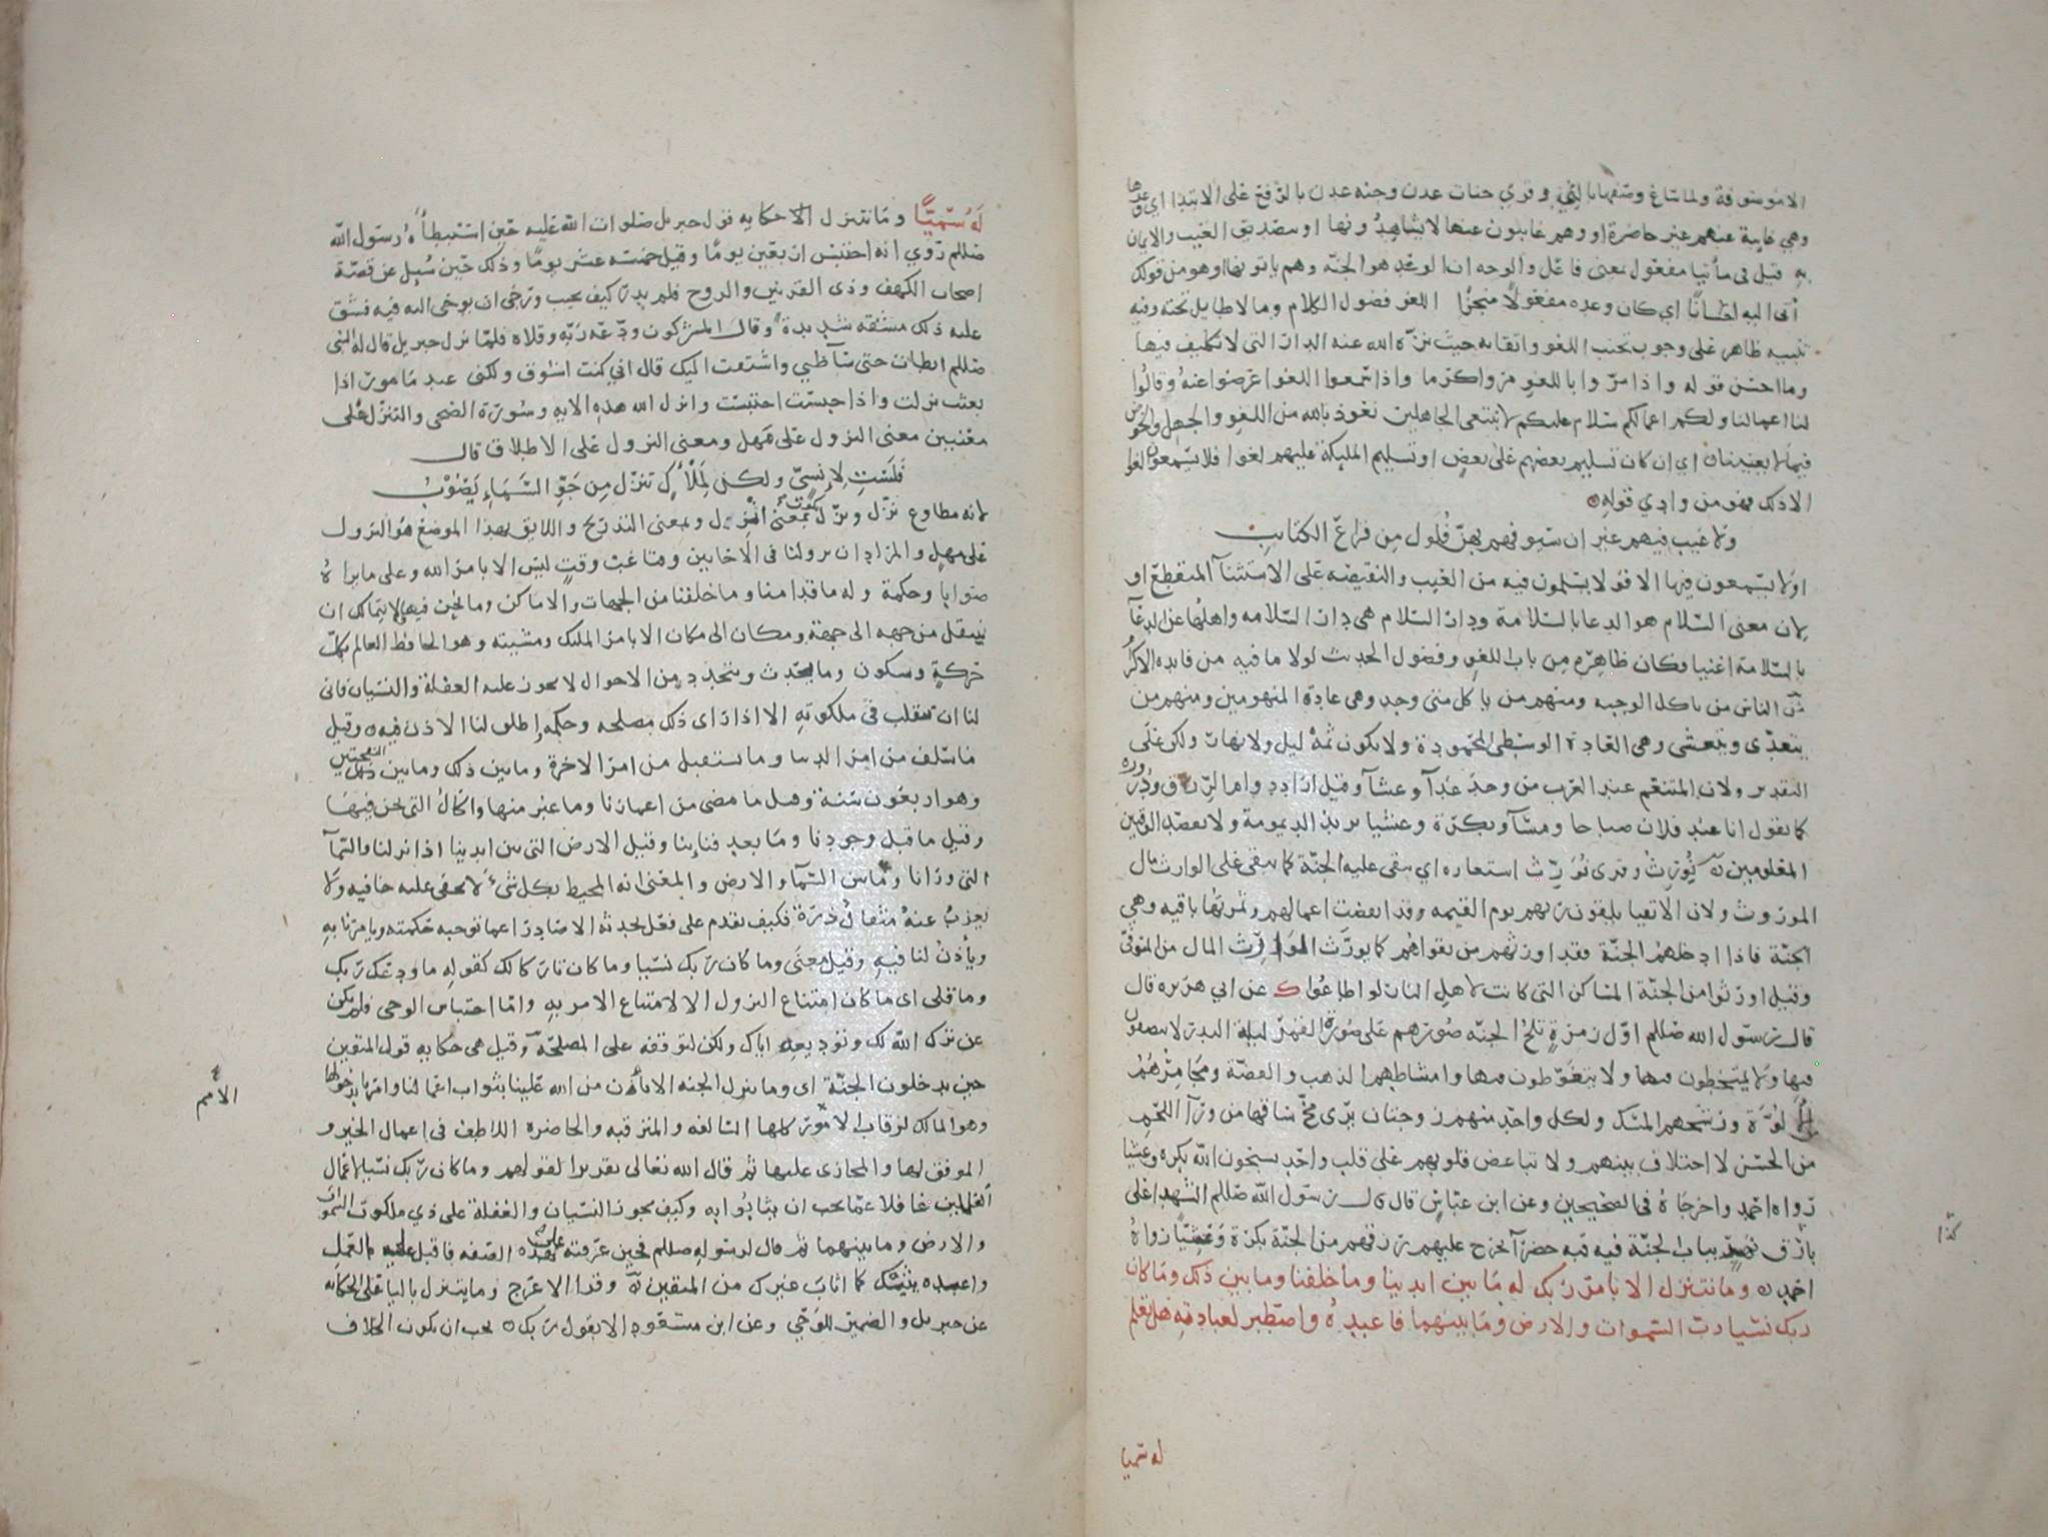 الاموصوفة ولما ساغ وصفها بالتي وقري جنات عدن وجنة عدن بالرفع على الابتدا اي وعدها
وهي غايبة عنهم غير حاضرة او وهم غايبون عنها لا يشاهدونها او بتصديق الغيب والايمان
به قيل في مأتيا مفعول بمعنى فاعل والوجه ان الوعد هو الجنة وهم ياتونها او هو من قولك
أتى اليه احسانًا اي كان وعده مفعولًا منجزًا اللغو فضول الكلام وما لا طايل تحته وفيه
تنبيه ظاهر على وجوب تجنب اللغو واتقايه حيث نزه الله عنه الدار التي لا تكليف فيها
وما احسن قوله واذا مروا باللغو مروا كرما واذا سمعوا اللغو اعرضوا عنه وقالوا
لنا اعمالنا ولكم اعمالكم سلام عليكم لا نبتغي الجاهلين نعوذ بالله من اللغو والجهل والخوض
فيما لا يعنينا اي ان كان تسليم بعضهم على بعض او تسليم المليكة عليهم لغوا فلا يسمعون لغوا
الا ذلك فهو من وادي قوله
ولا عيب فيهم غير ان سيوفهم بهن فلول من قراع الكتايب
او لا يسمعون فيها الا قولا يسلمون فيه من العيب والنقيصة على الاستثنآ المنقطع او
لان معنى السلام هو الدعا بالسلامة ودار السلام هي دار السلامة واهلها عن الدعآ
بالسلامة اغنيا فكان ظاهره من باب اللغو وفضول الحديث لولا ما فيه من فايدة الاكرام
من الناس من ياكل الوجبة ومنهم من ياكل متى وجد وهي عادة المنهومين ومنهم من
يتغدى ويتعشى وهي العادة الوسطى المحمودة ولا يكون ثمه ليل ولا نهار ولكن على
التقدير ولان المتنعم عند العرب من وجد غدآ وعشآ وقيل اراد دوام الرزق ودروره
كما يقول انا عند فلان صباحا ومسآ وبكرة وعشيا يريد الديمومة ولا يقصد الوقتين
المعلومين نورث وقرى نورّث استعارة اي نبقي عليه الجنة كما نبقي على الوارث مال
الموروث ولان الاتقيا يلقون ربهم يوم القيمة وقد انقضت اعمالهم وثمرتها باقية وهي
الجنة فاذا ادخلهم الجنة فقد اورثهم من تقواهم كما يورث الوارث المال من المتوفى
وقيل اورثوا من الجنة المساكن التي كانت لاهل النار لو اطاعوا ك عن ابي هريرة قال
قال رسول الله صللم اول زمرة تلج الجنة صورتهم على صورة القمر ليلة البدر لا يبصقون
فيها ولا يمتخطون فيها ولا يتغوطون فيها وامشاطهم الذهب والفضة ومجامرهم
الألوّة ورشحهم المسك ولكل واحد منهم زوجتان يرى مخ ساقها من ورآ اللحم
من الحسن لا اختلاف بينهم ولا تباغض قلوبهم على قلب واحد يسبحون الله بكرة وعشيا
رواه احمد واخرجاه في الصحيحين وعن ابن عباس قال قال رسول الله صللم الشهدا على
بارق نهر بباب الجنة فيه قبة خضرآ يخرج عليهم رزقهم من الجنة بكرة وعشيًا رواه
احمد وما نتنزل الا بامر ربك له ما بين ايدينا وما خلفنا وما بين ذلك وما كان
ربك نسيا رب السموات والارض وما بينهما فاعبده واصطبر لعبادته هل تعلم
له سميا
كذا
لَهُ سَمِيًّا وما نتنزل الا حكاية قول جبريل صلوات الله عليه حين استبطأه رسول الله
صللم روي انه احتبس اربعين يومًا وقيل خمسة عشر يومًا وذلك حين سيل عن قصة
اصحاب الكهف وذي القرنين والروح فلم يدر كيف يجيب ورجى ان يوحى اليه فيه فشق
عليه ذلك مشقة شديدة وقال المشركون ودعه ربه وقلاه فلما نزل جبريل قال له النبي
صللم ابطات حتى سآ ظني واشتقت اليك قال اني كنت اشوق ولكني عبد مامور اذا
بعثت نزلت واذا حبست احتبست وانزل الله هذه الاية وسورة الضحى والتنزل على
معنيين معنى النزول على مهل ومعنى النزول على الاطلاق قال
فَلَسْتِ لِإنسيٍّ ولكن لِمَلْأَكٍ تنزل من جَوِّ السَّمَاءِ يَصُوْبُ
لانه مطاوع نزّل ونزّل يكون بمعنى انزل وبمعنى التدريج واللايق بهذا الموضع هو النزول
على مهل والمراد ان نزولنا في الاحايين وقتا غب وقت ليس الا بامر الله وعلى ما يراه
صوابا وحكمة وله ما قدامنا وما خلفنا من الجهات والاماكن وما نحن فيها لا نتمالك ان
ننتقل من جهة الى جهة ومكان الى مكان الا بامر المليك ومشيته وهو الحافظ العالم بكل
حركة وسكون وما يحدث ويتجدد من الاحوال لا يجوز عليه الغفلة والنسيان فانى
لنا ان نتقلب في ملكوته الا اذا راى ذلك مصلحة وحكمة واطلق لنا الاذن فيه وقيل
ما سلف من امر الدنيا وما يستقبل من امر الاخرة وما بين ذلك وما بين النفختين
وهو اربعون سنة وقيل ما مضى من اعمارنا وما غبر منها والحال التي نحن فيها
وقيل ما قبل وجودنا وما بعد فناينا وقيل الارض التي بين ايدينا اذا نزلنا والسمآ
التي ورانا وما بين السمآ والارض والمعنى انه المحيط بكل شيء لا تخفى عليه خافية ولا
يعزب عنه مثقال ذرة فكيف نقدم على فعل نحدثه الا صادرا عما توجبه حكمته ويامرنا به
ويأذن لنا فيه وقيل معنى وما كان ربك نسيا وما كان تاركا لك كقوله ما ودعك ربك
وما قلى اى ما كان امتناع النزول الا لامتناع الامر به واما احتباس الوحي فلم يكن
عن ترك الله لك وتوديعه اياك ولكن لتوقفه على المصلحة وقيل هي حكاية قول المتقين
حين يدخلون الجنة اى وما نتنزل الجنة الا بأذن من الله علينا بثواب اعمالنا وامرنا بدخولها
وهو المالك لرقاب الامور كلها السالفة والمترقبة والحاضرة اللاطف في اعمال الخير و
الموفق لها والمجازي عليها ثم قال الله تعالى تقريرا لقولهم وما كان ربك نسيا لاعمال
العاملين غافلا عما يجب ان يثابوا به وكيف يجوز النسيان والغفلة على ذي ملكوت السموات
والارض وما بينهما ثم قال لرسوله صللم فحين عرفته على هذه الصفة فاقبل على العمل
واعبده يثبك كما اثاب غيرك من المتقين وقرا الاعرج وما يتنزل باليا على الحكاية
عن جبريل والضمير للوحي وعن ابن مسعود الا بقول ربك يجب ان يكون الخلاف
الأمم